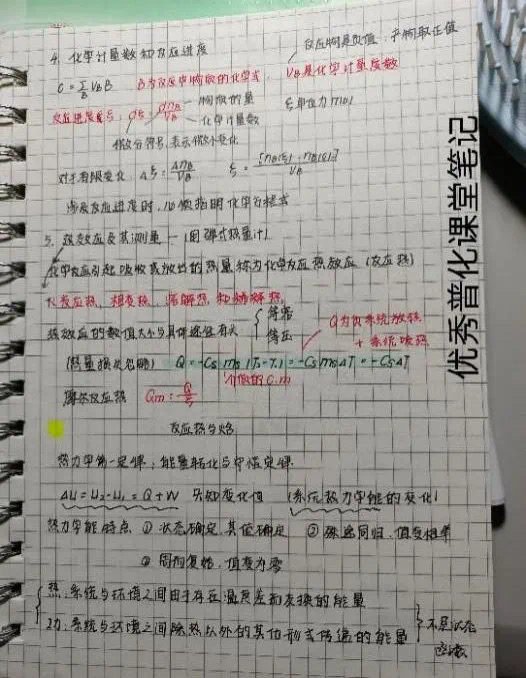 4. 化学计量数和反应进度
反应物是负值,产物取正值
0 = ΣB νB B B为反应中物质的化学式 νB是化学计量数
反应进度ξ: dξ = dnB/νB 物质的量 化学计量数 ξ单位为mol
微分符号,表示微小变化
对于有限变化 Δξ = ΔnB/νB ξ = [nB(ξ) - nB(0)]/νB
涉及反应进度时,必须指明化学方程式
5. 热效应及其测量 — (用弹式热量计)
化学反应引起吸收或放出的热量称为化学反应热效应 (反应热)
反应热、相变热、溶解热和稀释热
热效应的数值大小与具体途径有关 { 等容 等压
Q为负系统放热 + 系统吸热
(热量损失忽略) Q = -Cs ms (T2 - T1) = -Cs ms ΔT = -Cs ΔT
摩尔反应热 Qm = Q/ξ
反应热与焓
热力学第一定律:能量转化与守恒定律
ΔU = U2 - U1 = Q + W 只知变化值 (系统热力学能的变化)
热力学能特点 ① 状态确定,其值确定 ② 殊途同归,值变相等
③ 周而复始,值变为零
热:系统与环境之间由于存在温度差而交换的能量
功:系统与环境之间除热以外的其他形式传递的能量 } 不是状态函数
优秀普化课堂笔记